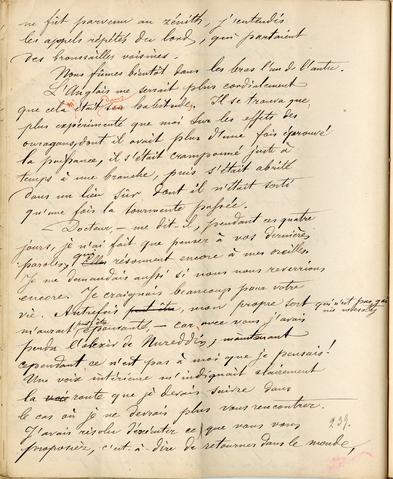 ne fût parvenu au zénith, j'entendis
les appels répétés du lord, qui partaient
des broussailles voisines.
Nous fûmes bientôt dans les bras l'un de l'autre.
L'Anglais me serrait plus cordialement
que cela était son habitude. Il se trouva que,
plus expérimenté que moi sur les effets des
ouragans, dont il avait plus d'une fois éprouvé
la puissance, il s'était cramponné juste à
temps à une branche, puis s'était abrité
dans un lieu sûr dont il n'était sorti
qu'une fois la tourmente passée.
— Docteur, — me dit-il, pendant ces quatre
jours, je n'ai fait que penser à vos dernières
paroles, qui résonnent encore à mes oreilles.
Je me demandais aussi si nous nous reverrions
encore. Je craignais beaucoup pour votre
vie. Autrefois peut-être, mon propre sort
m'aurait peut-être épouvanté, — car avec vous j'avais
perdu l'élexir de Nureddin, maintenant
cependant ce n'est pas à moi que je pensais!
Une voix intérieure m'indiquait clairement
la voix route que je devais suivre dans
le cas où je ne devrais plus vous rencontrer.
J'avais résolu d'exécuter ce que vous vous
proposiez, c'est-à-dire de retourner dans le monde,
239.